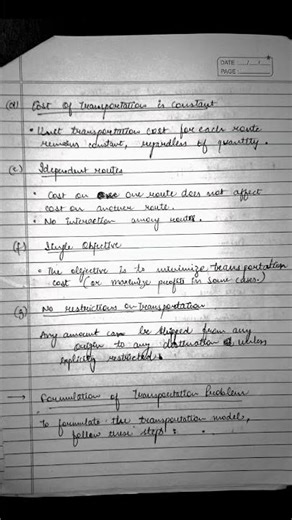 DATE: __/__/__
PAGE:
(d) Cost of Transportation is constant
• Unit transportation cost for each route
remains constant, regardless of quantity.
(e) Independent routes
• Cost on one route does not affect
cost on another route.
• No interaction among routes.
(f) Single objective
• The objective is to minimize transportation
cost (or maximize profits in some cases.)
(g) No restrictions on Transportation
Any amount can be shipped from any
origin to any destination unless
explicitly restricted.
→ Formulation of Transportation Problem
To formulate the transportation model,
follow these steps :